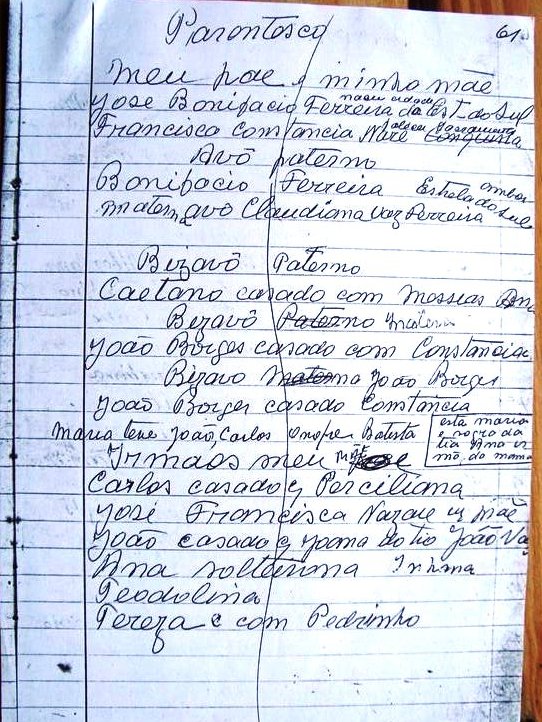 Parentesco
61
meu pae e minha mãe
José Bonifacio Ferreira da Est. do Sul
Francisca Constancia Naré
Avô paterno
Bonifacio Ferreira Estrela do Sul ambos
materna avô Claudiana Vaz Ferreira
Bizavô Paterno
Caetano casado com Messias
Bezavô Paterno materna
João Borges casado com Constancia
Bizavo materna João Borges
João Borges casado Constancia
Maria teve João, Carlos Onofre Batista
esta maria
e sogra da
tia Ana ir
mã da mama
Irmãos meu
Carlos casado c Perciliana
José Francisca Nazare m mãe
João casado c Joana do tio João Vaz
Ana solteirona Inhana
Teodolina
Tereza c com Pedrinho